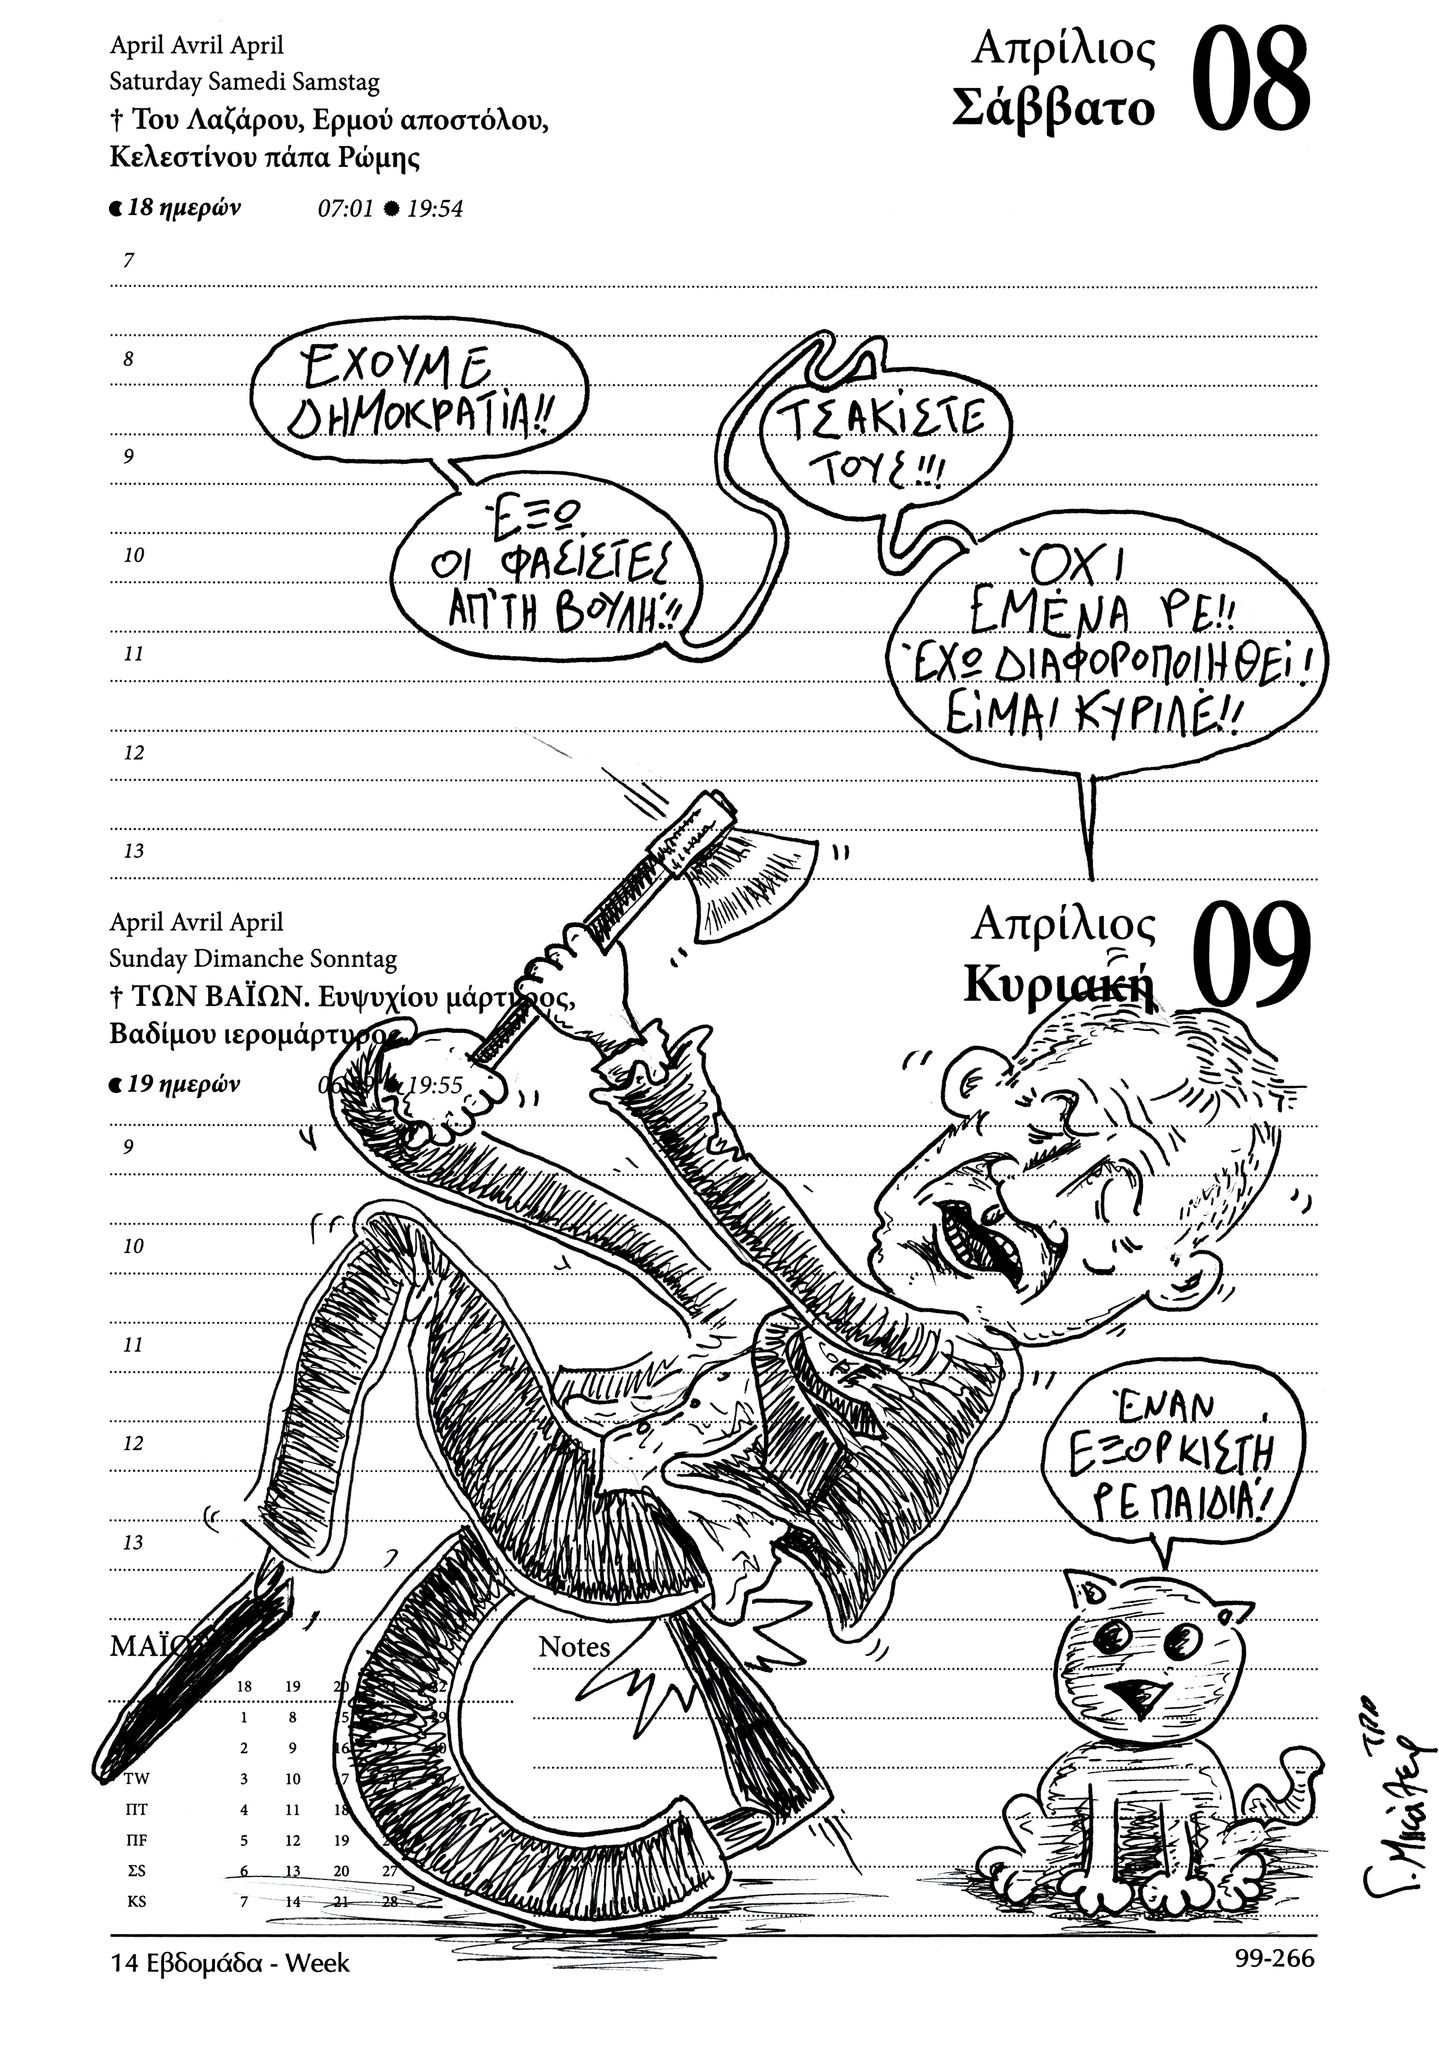 April Avril April
Saturday Samedi Samstag
† Του Λαζάρου, Ερμού αποστόλου,
Κελεστίνου πάπα Ρώμης
18 ημερών 07:01 19:54
Απρίλιος
Σάββατο
08
7
8
9
10
11
12
13
ΈΧΟΥΜΕ
ΔΗΜΟΚΡΑΤΙΑ!!
ΈΞΩ
ΟΙ ΦΑΣΙΣΤΕΣ
ΑΠ'ΤΗ ΒΟΥΛΗ!!
ΤΣΑΚΙΣΤΕ
ΤΟΥΣ!!!
ΌΧΙ
ΕΜΈΝΑ ΡΕ!!
ΈΧΩ ΔΙΑΦΟΡΟΠΟΙΗΘΕΙ!
ΕΙΜΑΙ ΚΥΡΙΛΈ!!
April Avril April
Sunday Dimanche Sonntag
† ΤΩΝ ΒΑΪΩΝ. Ευψυχίου μάρτυρος,
Βαδίμου ιερομάρτυρος
19 ημερών 19:55
Απρίλιος
Κυριακή
09
9
10
11
12
13
ΈΝΑΝ
ΕΞΟΡΚΙΣΤΉ
ΡΕ ΠΑΙΔΙΆ!
ΜΑΪΟΣ
Notes
18 19 20
1 8 15
2 9 16 23
TW 3 10 17
ΠΤ 4 11 18
ΠF 5 12 19
ΣS 6 13 20 27
KS 7 14 21 28
14 Εβδομάδα - Week
99-266